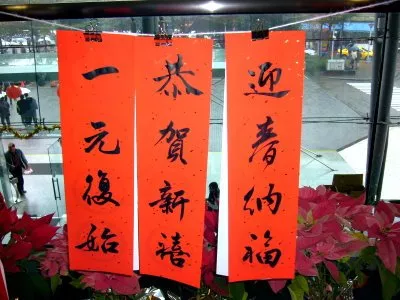 迎春納福
恭賀新禧
一元復始